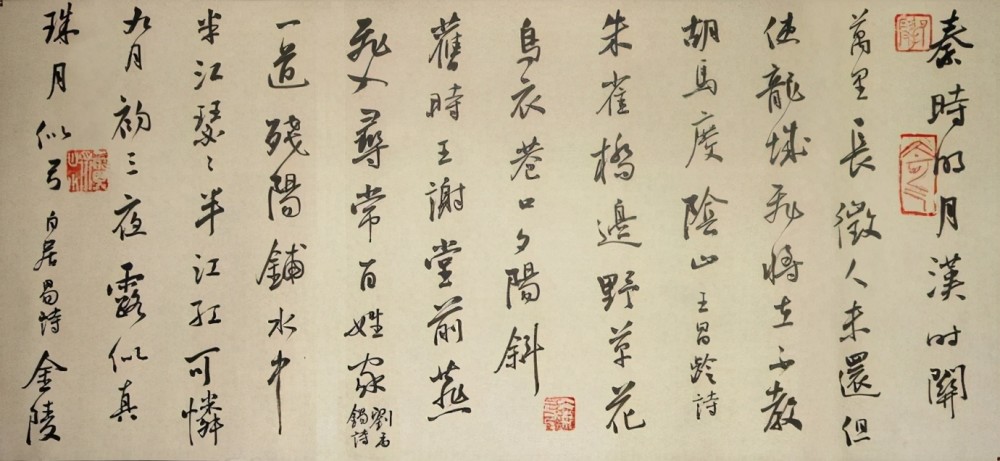 秦時明月漢時關
萬里長徵人未還但
使龍城飛將在不教
胡馬度陰山 王昌齡詩
朱雀橋邊野草花
烏衣巷口夕陽斜
舊時王謝堂前燕
飛入尋常百姓家 劉禹錫詩
一道殘陽鋪水中
半江瑟〻半江紅可憐
九月初三夜露似真
珠月似弓 白居易詩 金陵